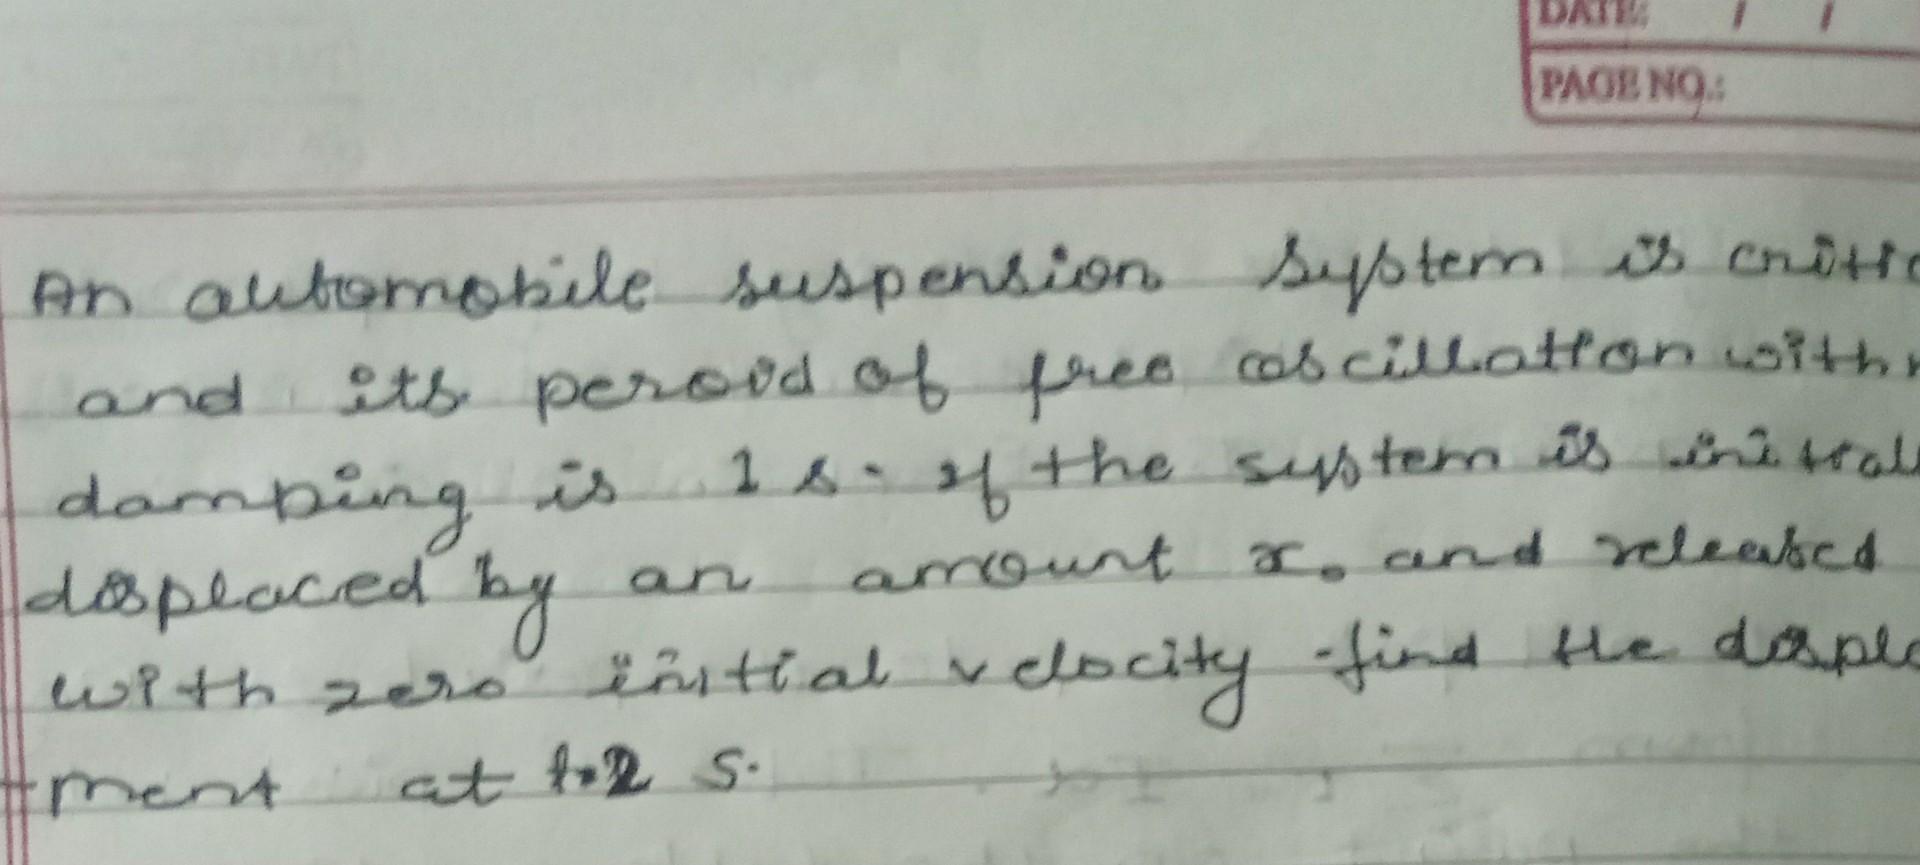 DATE: / /
PAGE NO.:
An automobile suspension system is critic
and its peroid of free oscillation with
damping is 1 s. If the system is initial
displaced by an amount x₀ and released
with zero initial velocity find the displa
ment at t=2 s.